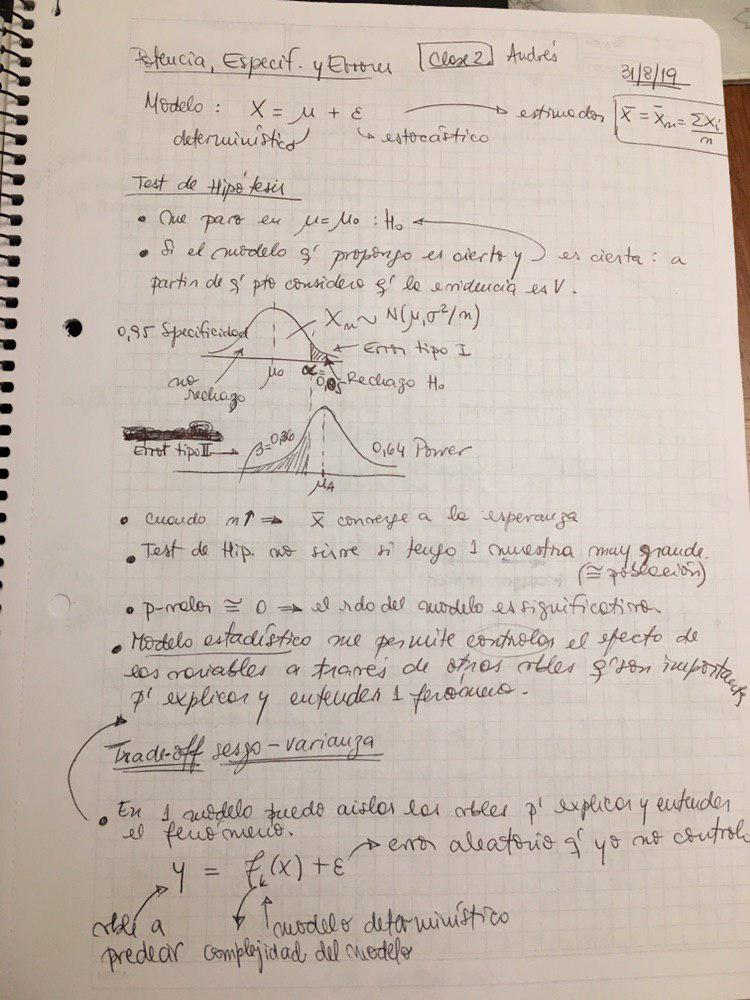 Potencia, Especif. y Errores
Clase 2
Andrés
31/8/19
Modelo : X = μ + ε → estimador
X̄ = X̄n = ΣXi / n
determinístico
estocástico
Test de Hipótesis
• Que paro en μ = μ0 : H0
• Si el modelo q' propongo es cierto y es cierta : a
partir de q' pto considero q' la evidencia es V.
0,95 Specificidad
Xn ~ N(μ, σ²/n)
Error tipo I
no rechazo
μ0
α = 0,05
Rechazo H0
Error tipo II →
β = 0,36
0,64 Power
μA
• Cuando n↑ ⇒ x̄ converge a la esperanza
• Test de Hip. no sirve si tengo 1 muestra muy grande.
(≅ población)
• p-valor ≅ 0 ⇒ el rdo del modelo es significativo.
• Modelo estadístico me permite controlar el efecto de
las variables a través de otras vbles q' son importantes
p' explicar y entender 1 fenómeno.
Trade-off sesgo-varianza
• En 1 modelo puedo aislar las vbles p' explicar y entender
el fenómeno.
y = fk(x) + ε
error aleatorio q' yo no controlo
vble a
predecir
modelo determinístico
complejidad del modelo